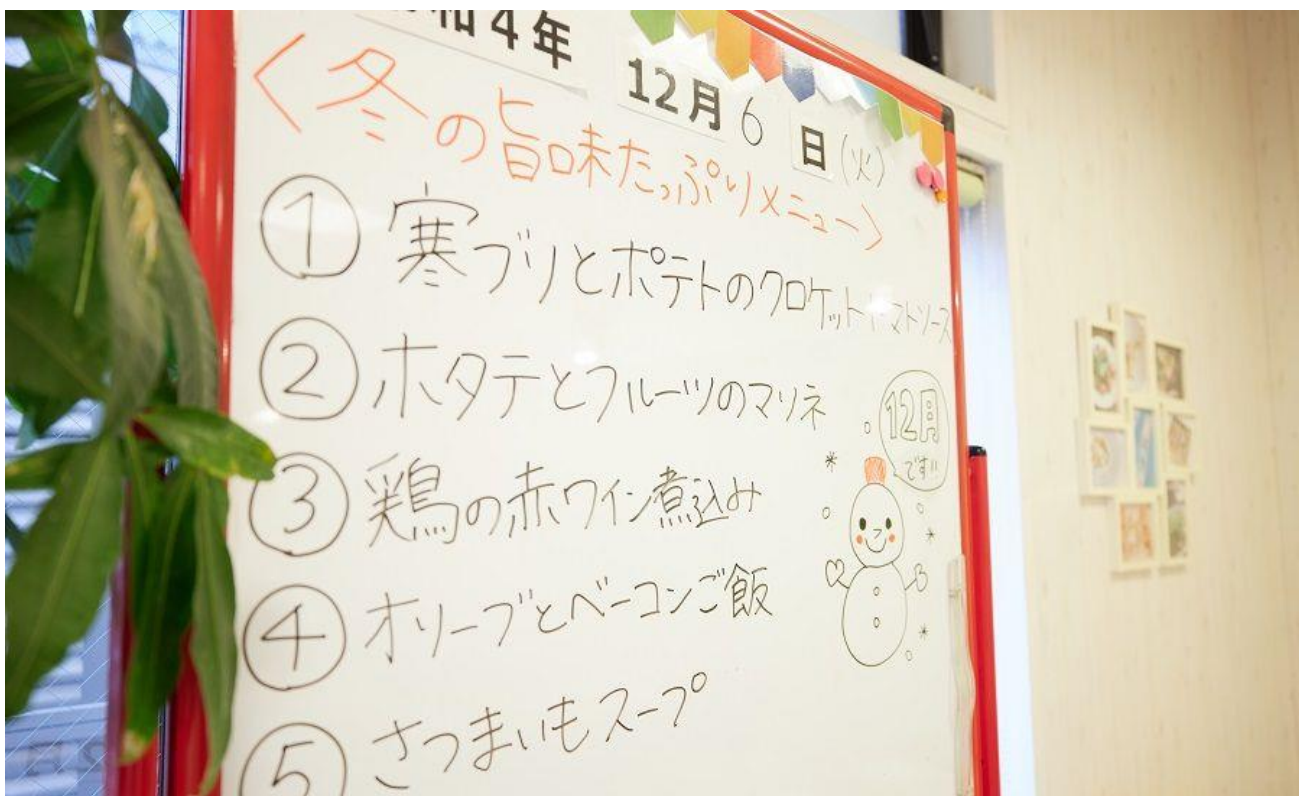 和4年 12月6日(火)
<冬の旨味たっぷりメニュー>
① 寒ブリとポテトのクロケットトマトソース
② ホタテとフルーツのマリネ
③ 鶏の赤ワイン煮込み
④ オリーブとベーコンご飯
⑤ さつまいもスープ
12月
です!!